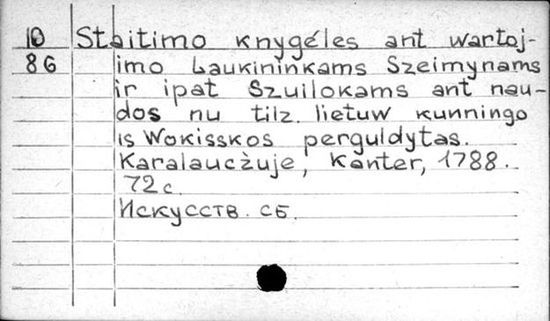 10 Staitimo knygéles ant wartoj-
86 imo Laukininkams Szeimynams
ir ipat Szuilokams ant nau-
dos nu tilz. lietuw kunningo
is Wokisskos perguldytas.
Karalaucżuje, Kanter, 1788.
72 c.
Искусств. сб.